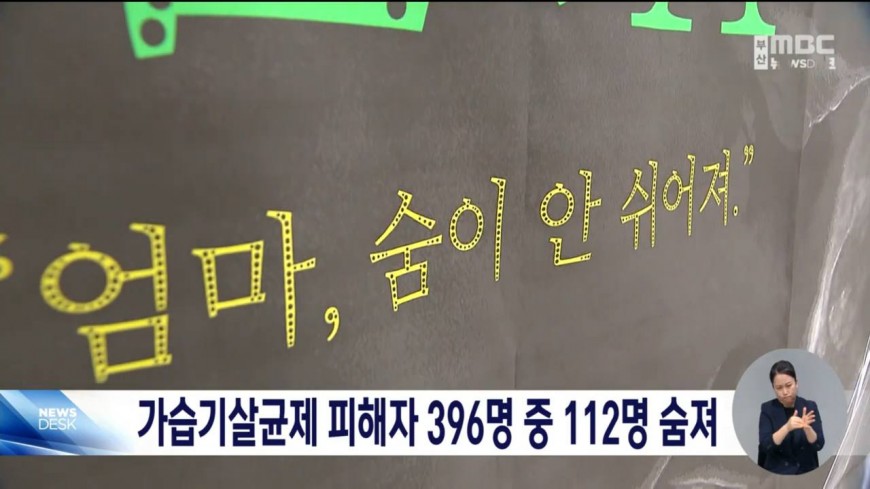 부산 MBC
뉴스데스크
“엄마, 숨이 안 쉬어져.”
NEWS
DESK
가습기살균제 피해자 396명 중 112명 숨져